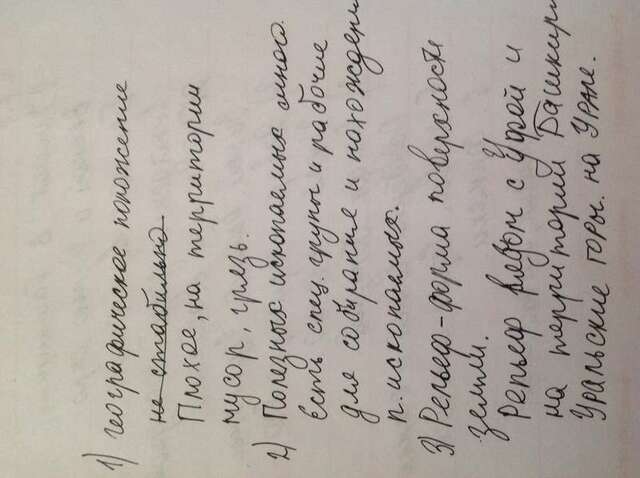 1) географическое положение
не стабильно
Плохое, на территории
мусор, грязь.
2) Полезных ископаемых много.
Есть спец. групы и рабочие
для собирания и нахождени
п. ископаемых.
3) Рельеф-форма поверхности
земли.
Рельеф рядом с Уфой и
на территории Башкири
Уральские горы. на УРАЛЕ.